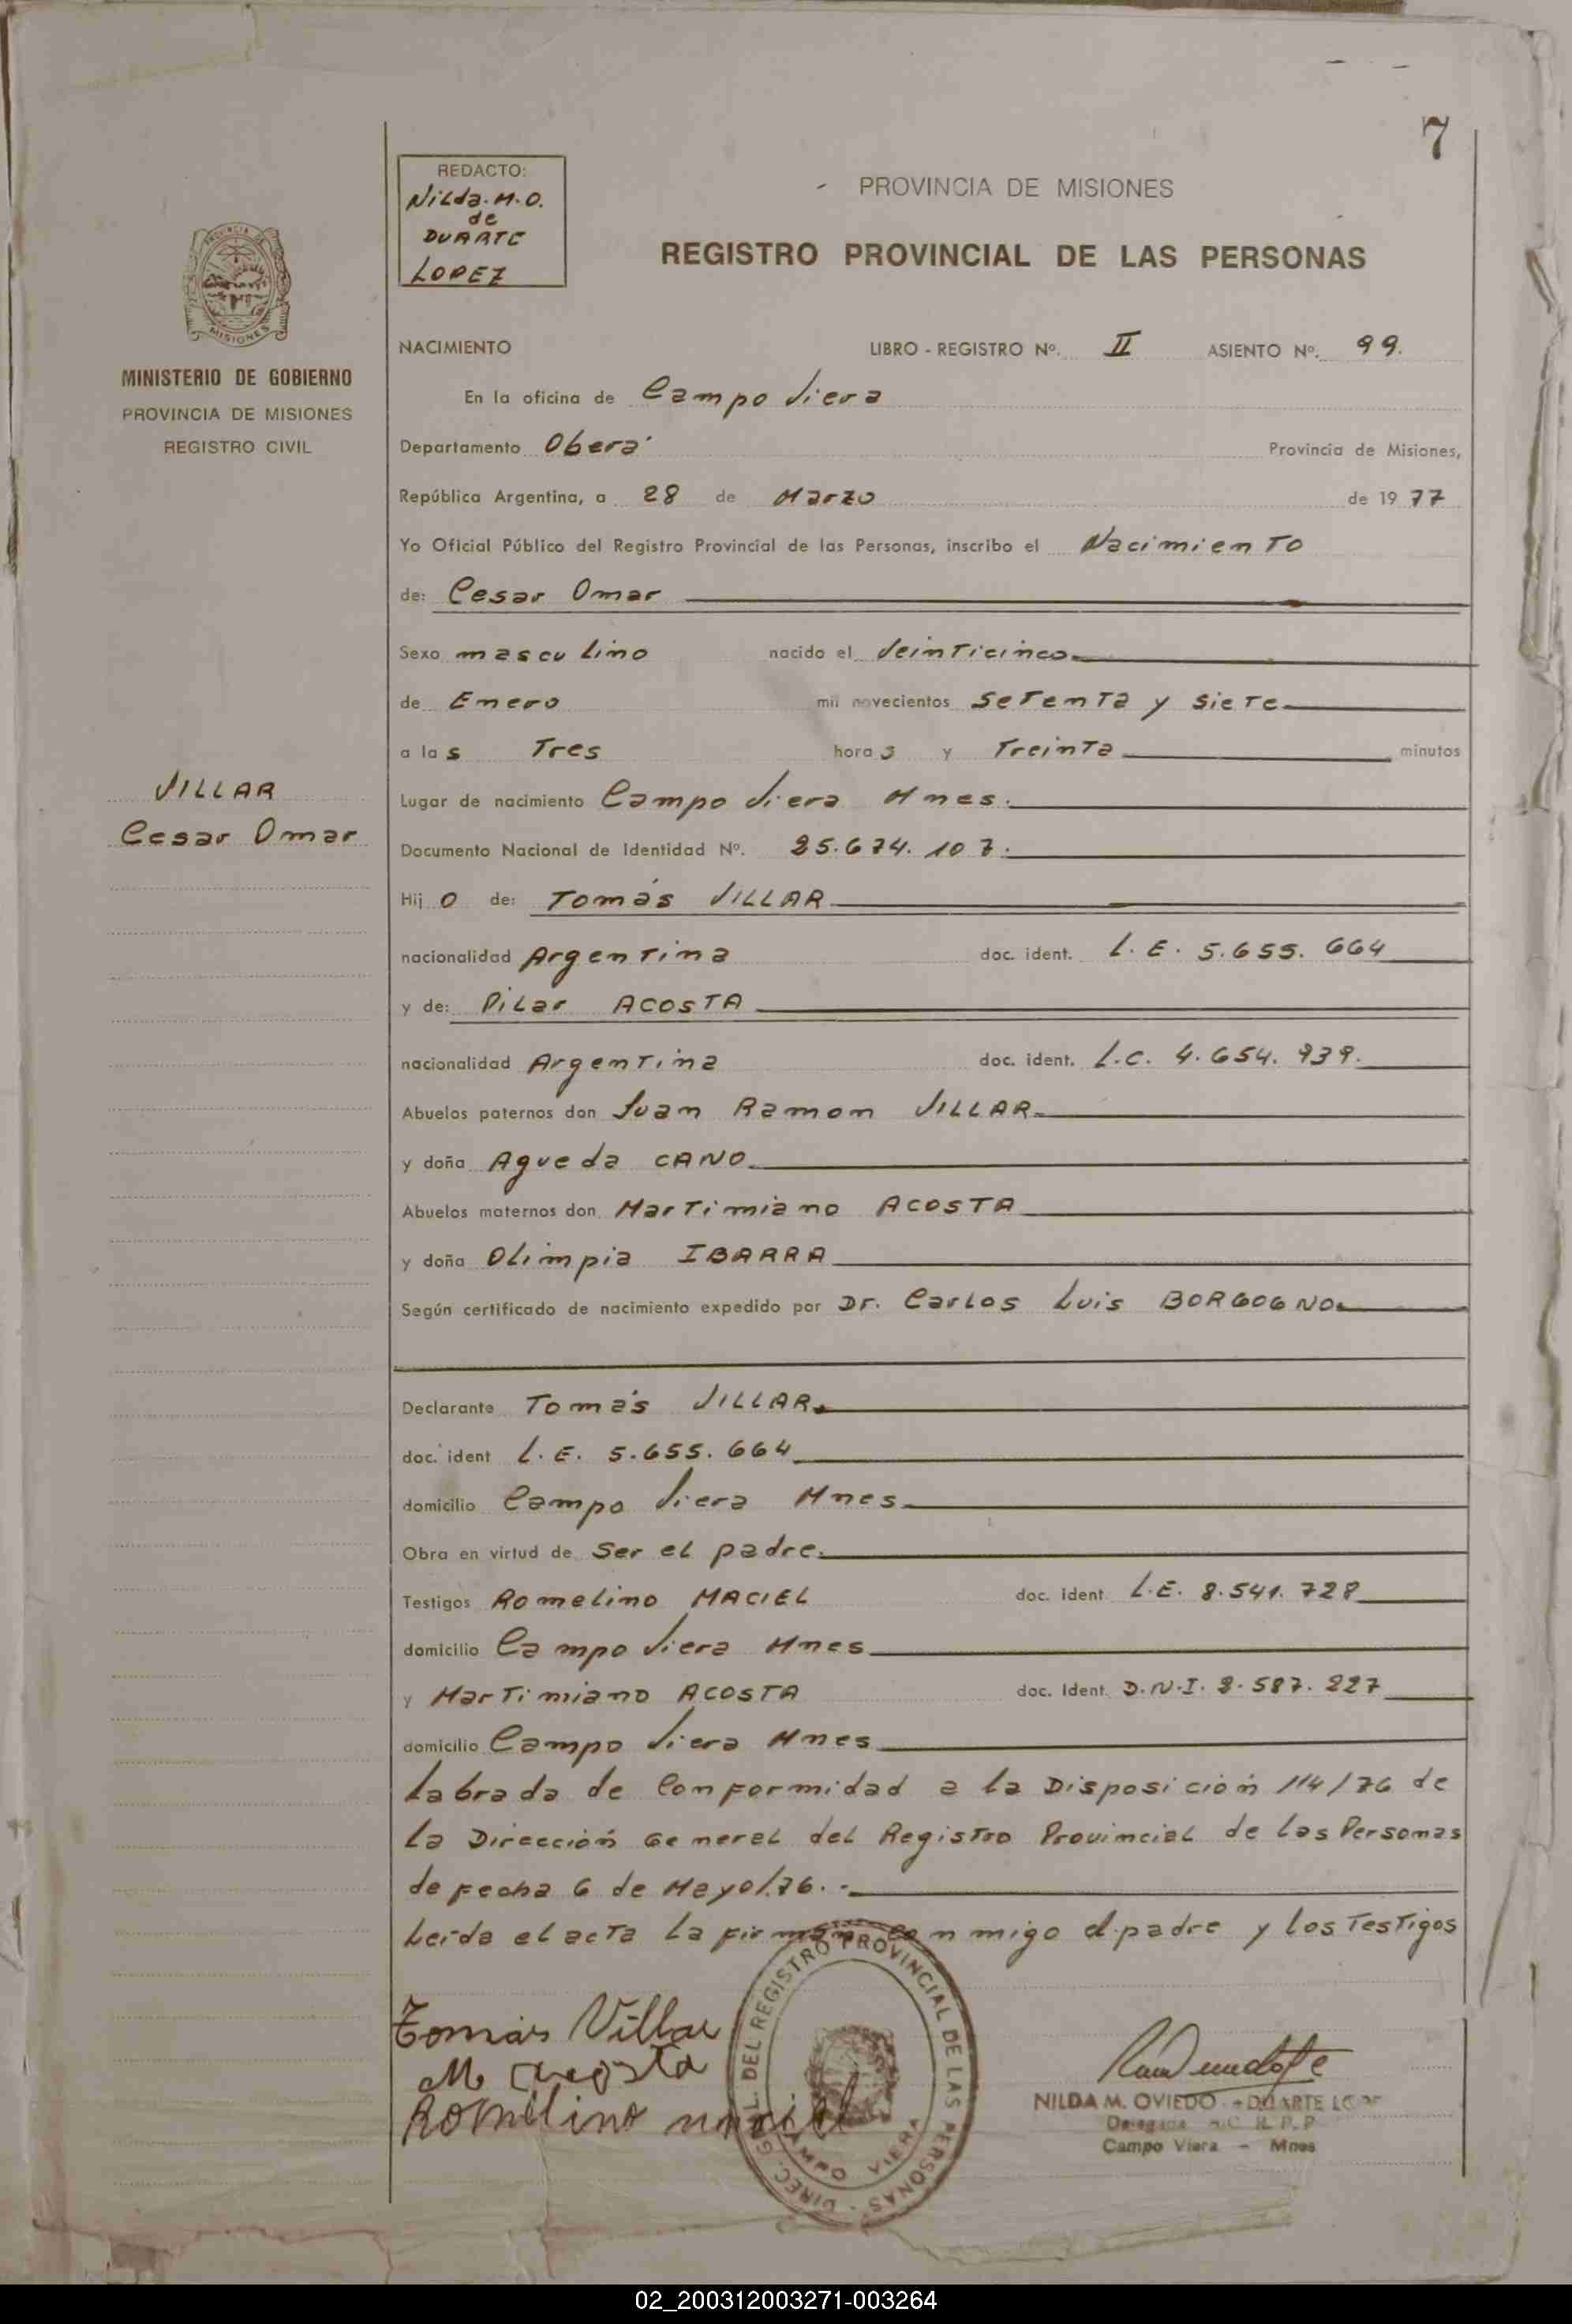 7
REDACTO:
Nilda. M. O.
de
DUARTE
LOPEZ
PROVINCIA DE MISIONES
REGISTRO PROVINCIAL DE LAS PERSONAS
PROVINCIA DE
MISIONES
MINISTERIO DE GOBIERNO
PROVINCIA DE MISIONES
REGISTRO CIVIL
NACIMIENTO LIBRO - REGISTRO Nº. II ASIENTO Nº. 99.
En la oficina de Campo Viera
Departamento Oberá Provincia de Misiones,
República Argentina, a 28 de Marzo de 19 77
Yo Oficial Público del Registro Provincial de las Personas, inscribo el Nacimiento
de: Cesar Omar
Sexo masculino nacido el Veinticinco
de Enero mil novecientos Setenta y Siete
a las Tres horas y Treinta minutos
VILLAR
Cesar Omar
Lugar de nacimiento Campo Viera Mnes.
Documento Nacional de Identidad Nº. 25.674.107.
Hijo de: Tomás VILLAR
nacionalidad Argentina doc. ident. L. E. 5.655. 664
y de: Pilar ACOSTA
nacionalidad Argentina doc. ident. L.C. 4.654. 939.
Abuelos paternos don Juan Ramon VILLAR
y doña Agueda CANO
Abuelos maternos don Martimiano ACOSTA
y doña Olimpia IBARRA
Según certificado de nacimiento expedido por Dr. Carlos Luis BORGOGNO
Declarante Tomás VILLAR
doc. ident L. E. 5.655. 664
domicilio Campo Viera Mnes
Obra en virtud de Ser el padre.
Testigos Romelino MACIEL doc. ident. L.E. 8.541. 728
domicilio Campo Viera Mnes
y Martimiano ACOSTA doc. Ident. D.N.I. 8.587. 227
domicilio Campo Viera Mnes
Labrada de Conformidad a la Disposición 114/76 de
la Dirección General del Registro Provincial de las Personas
de fecha 6 de Mayo/.76. -
Leída el acta la firman conmigo el padre y los Testigos
Tomás Villar
M Acosta
Romelino maciel
DIREC. GRAL. DEL REGISTRO PROVINCIAL DE LAS PERSONAS
CAMPO VIERA
NILDA M. OVIEDO DUARTE
Delegada R. P. P
Campo Viera - Mnes
02_200312003271-003264